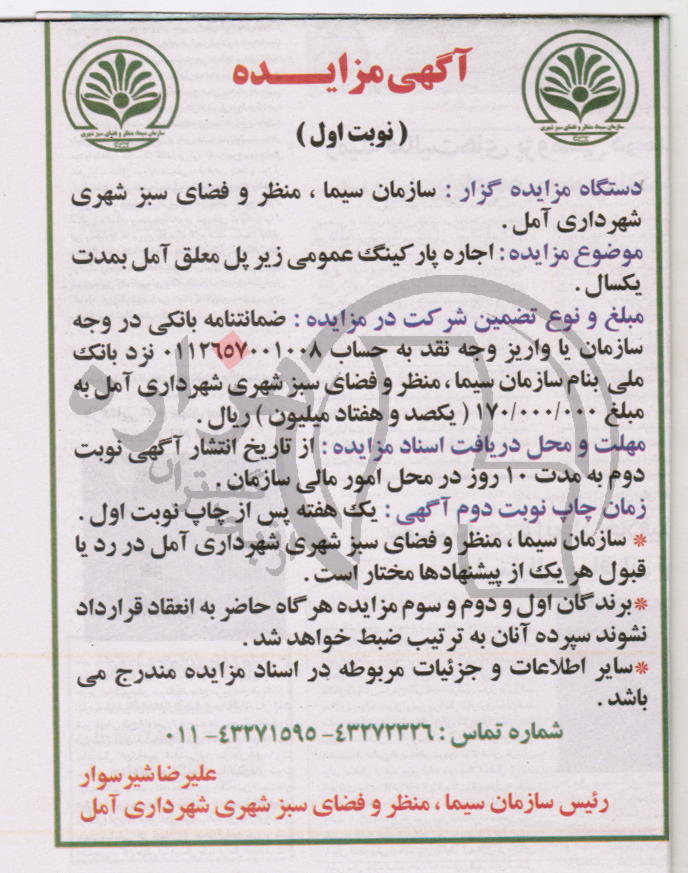 آگهی مزایـــــده
(نوبت اول)
سازمان سیما، منظر و فضای سبز شهری
سازمان سیما، منظر و فضای سبز شهری
دستگاه مزایده گزار : سازمان سیما ، منظر و فضای سبز شهری
شهرداری آمل .
موضوع مزایده : اجاره پارکینگ عمومی زیر پل معلق آمل بمدت
یکسال .
مبلغ و نوع تضمین شرکت در مزایده : ضمانتنامه بانکی در وجه
سازمان یا واریز وجه نقد به حساب ۰۱۱۲۶۵۷۰۰۱۰۰۸ نزد بانک
ملی بنام سازمان سیما ، منظر و فضای سبز شهری شهرداری آمل به
مبلغ ۱۷۰/۰۰۰/۰۰۰ ( یکصد و هفتاد میلیون ) ریال .
مهلت و محل دریافت اسناد مزایده : از تاریخ انتشار آگهی نوبت
دوم به مدت ۱۰ روز در محل امور مالی سازمان .
زمان چاپ نوبت دوم آگهی : یک هفته پس از چاپ نوبت اول .
* سازمان سیما ، منظر و فضای سبز شهری شهرداری آمل در رد یا
قبول هر یک از پیشنهادها مختار است .
*برندگان اول و دوم و سوم مزایده هر گاه حاضر به انعقاد قرارداد
نشوند سپرده آنان به ترتیب ضبط خواهد شد .
*سایر اطلاعات و جزئیات مربوطه در اسناد مزایده مندرج می
باشد .
شماره تماس : ۴۳۲۷۲۳۲۶- ۴۳۲۷۱۵۹۵- ۰۱۱
علیرضا شیرسوار
رئیس سازمان سیما ، منظر و فضای سبز شهری شهرداری آمل